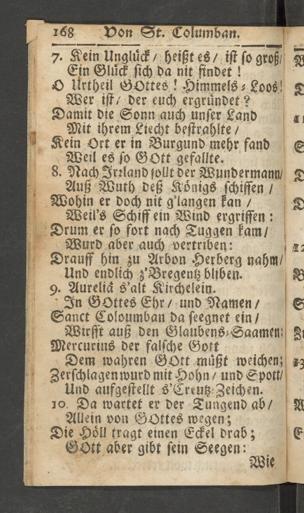 168 Von St. Columban.
7. Kein Unglück/ heißt es/ ist so groß/
Ein Glück sich da nit findet!
O Urtheil GOttes! Himmels-Loos!
Wer ist/ der euch ergründet?
Damit die Sonn auch unser Land
Mit ihrem Liecht bestrahlte/
Kein Ort er in Burgund mehr fand
Weil es so GOtt gefallte.
8. Nach Irrland sollt der Wundermann/
Auß Wuth deß Königs schiffen/
Wohin er doch nit g'langen kan/
Weil's Schiff ein Wind ergriffen:
Drum er so fort nach Tuggen kam/
Wurd aber auch vertriben:
Drauff hin zu Arbon Herberg nahm/
Und endlich z'Bregentz bliben.
9. Aureliä s'alt Kirchelein.
In GOttes Ehr/ und Namen/
Sanct Coloumban da seegnet ein/
Wirfft auß den Glaubens-Saamen:
Mercurius der falsche Gott
Dem wahren GOtt müßt weichen;
Zerschlagen wurd mit Hohn/ und Spott/
Und aufgestellt s'Creutz-Zeichen.
10. Da wartet er der Tungend ab/
Allein von GOttes wegen;
Die Höll tragt einen Eckel drab;
GOtt aber gibt sein Seegen:
Wie